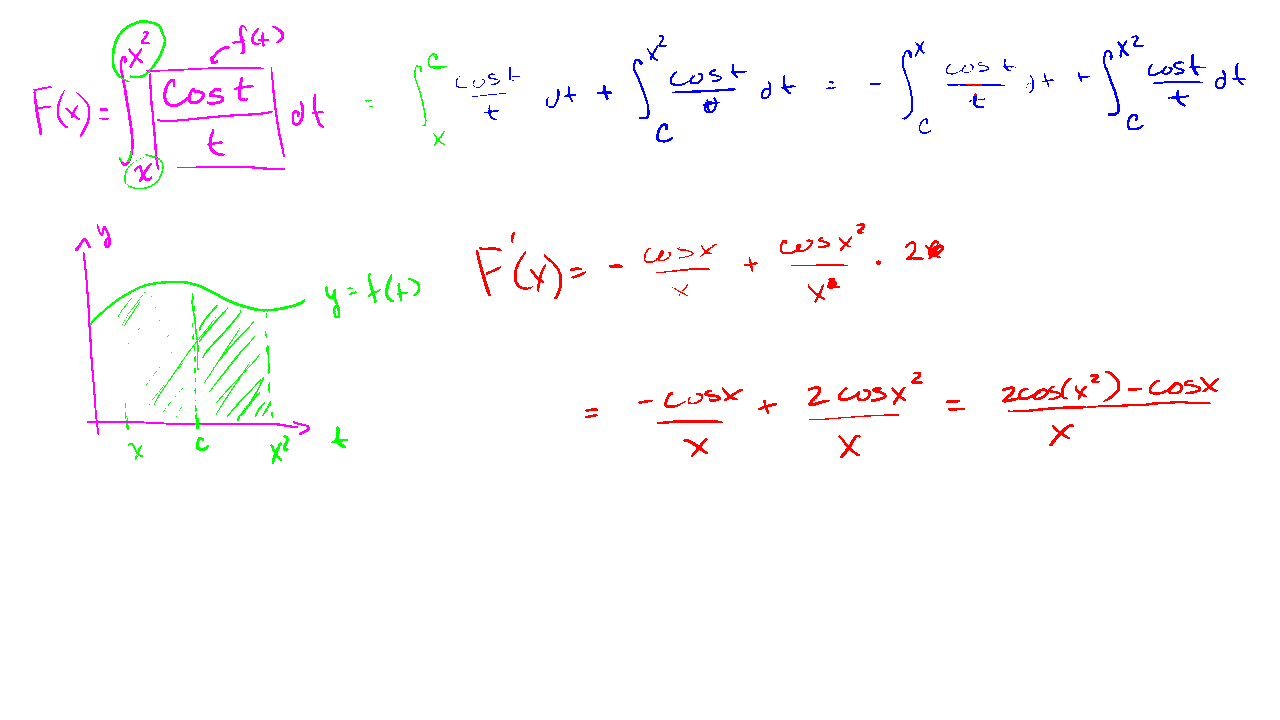 f(t)
F(x) = ∫_x^{x²} cos t / t dt = ∫_x^c cos t / t dt + ∫_c^{x²} cos t / t dt = - ∫_c^x cos t / t dt + ∫_c^{x²} cos t / t dt
y
y = f(t)
x c x² t
F'(x) = - cos x / x + cos x² / x • 2
= -cos x / x + 2 cos x² / x = 2cos(x²) - cos x / x